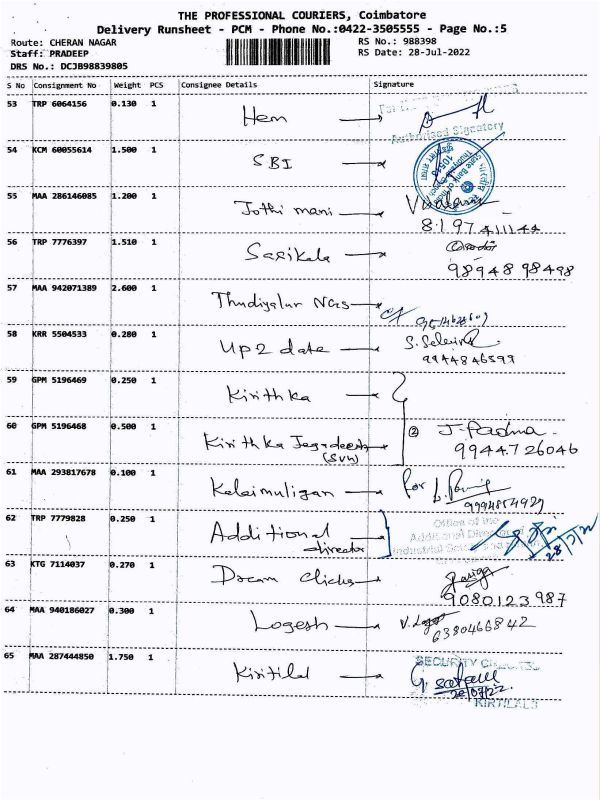 THE PROFESSIONAL COURIERS, Coimbatore
Delivery Runsheet - PCM - Phone No.:0422-3505555 - Page No.:5
Route: CHERAN NAGAR
RS No.: 988398
Staff: PRADEEP
RS Date: 28-Jul-2022
DRS No.: DCJB98839805
S No Consignment No Weight PCS Consignee Details Signature
53 TRP 6064156 0.130 1 Hem
Authorised Signatory
54 KCM 60055614 1.500 1 SBI
55 MAA 286145085 1.200 1 Jothi mani
8197411144
56 TRP 7776397 1.510 1 Sasikala
98948 98498
57 MAA 942071389 2.600 1 Thudiyalur Nas
58 KRR 5504533 0.280 1 Up 2 date
9944846599
59 GPM 5196469 0.250 1 Kirithka
60 GPM 5196468 0.500 1 Kirithka Jegadeesh
(Svw)
2 J. Padma
99447 26046
61 MAA 293817678 0.100 1 Kalaimuligan for
62 TRP 7779828 0.250 1 Additional
director
Office of the
Additional Director of
63 KTG 7114037 0.270 1 Dream Clicks
9080123987
64 MAA 940186027 0.300 1 Logesh
6380466842
65 MAA 287444850 1.750 1 Kirtilal
SECURITY
KIRTILALS